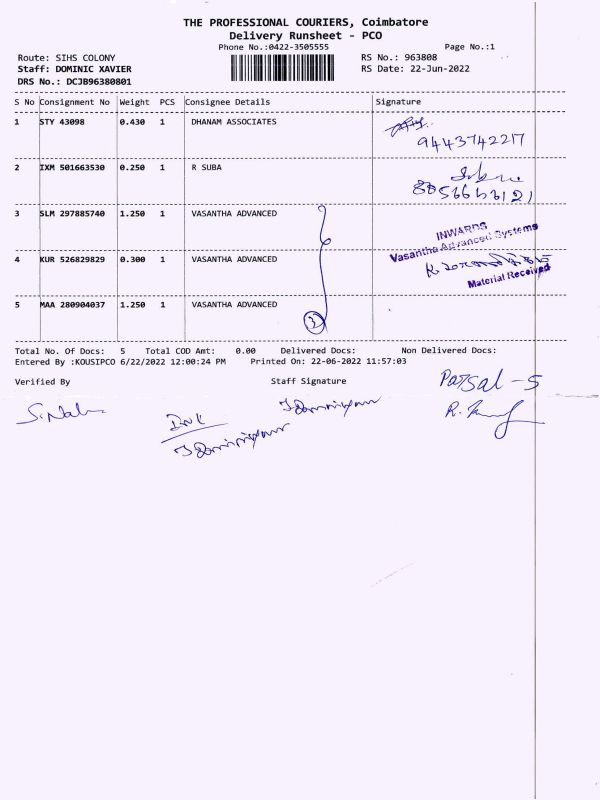 THE PROFESSIONAL COURIERS, Coimbatore
Delivery Runsheet - PCO
Phone No.:0422-3505555
Page No.:1
Route: SIHS COLONY
RS No.: 963808
Staff: DOMINIC XAVIER
RS Date: 22-Jun-2022
DRS No.: DCJB96380801
S No Consignment No Weight PCS Consignee Details Signature
1 STY 43098 0.430 1 DHANAM ASSOCIATES
9443742217
2 IXM 501663530 0.250 1 R SUBA
3 SLM 297885740 1.250 1 VASANTHA ADVANCED
INWARDS
Vasantha Advanced Systems
4 KUR 526829829 0.300 1 VASANTHA ADVANCED
Material Received
5 MAA 280904037 1.250 1 VASANTHA ADVANCED
3
Total No. Of Docs: 5 Total COD Amt: 0.00 Delivered Docs: Non Delivered Docs:
Entered By :KOUSIPCO 6/22/2022 12:00:24 PM Printed On: 22-06-2022 11:57:03
Verified By Staff Signature
Parsal - 5